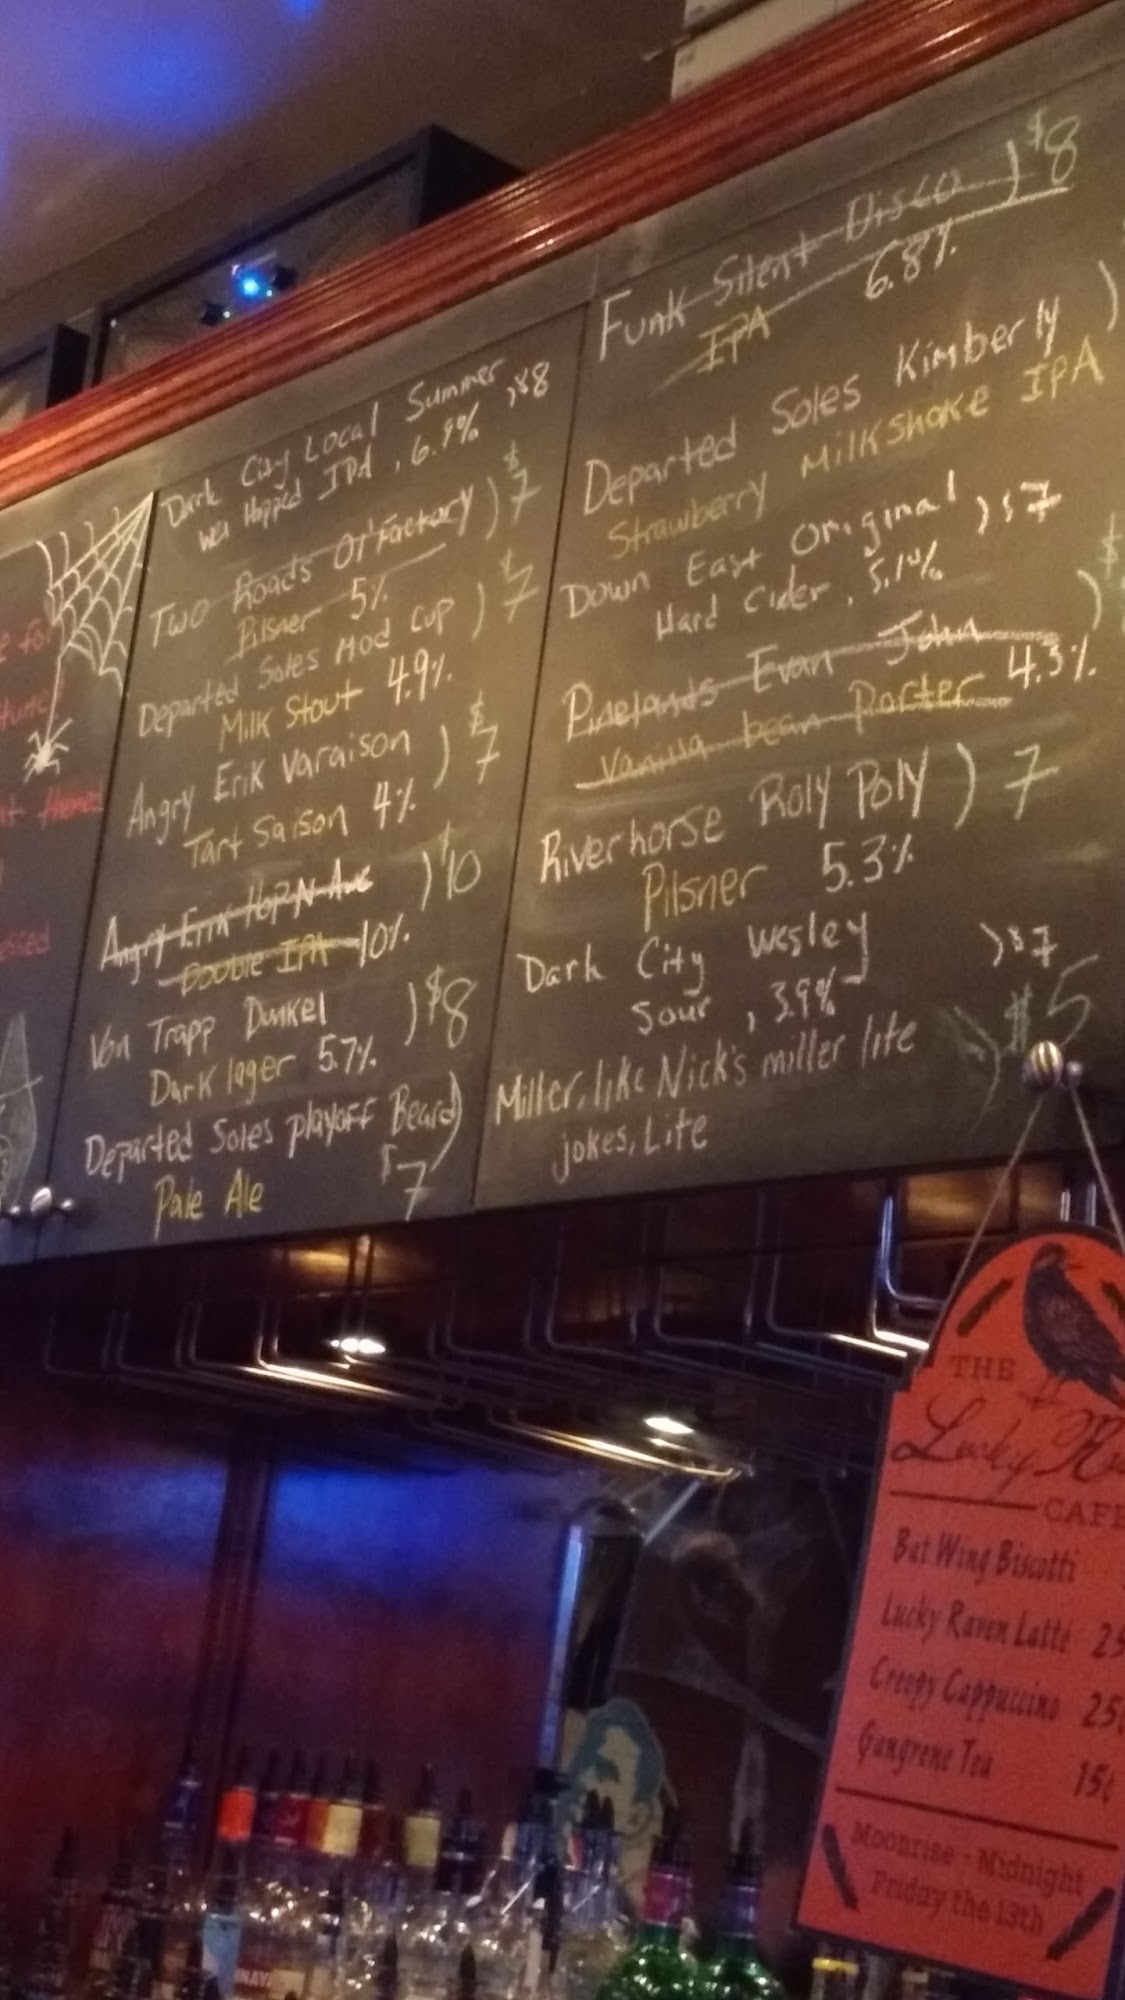 Dark City Local Summer )$8
Wet Hopped IPA, 6.9%
Two Roads Ol'Factory ) $7
Pilsner 5%
Departed Soles Mod Cup ) $7
Milk Stout 4.9%
Angry Erik Varaison ) $7
Tart Saison 4%
Angry Erik Hop N Ave ) $10
Double IPA 10%
Von Trapp Dunkel ) $8
Dark lager 5.7%
Departed Soles playoff Beard )
Pale Ale $7
Funk Silent Disco ) $8
IPA 6.8%
Departed Soles Kimberly )
Strawberry Milkshake IPA
Down East Original ) $7
Hard Cider, 5.1%
Pinelands Evan John ) $
Vanilla bean Porter 4.3%
Riverhorse Roly Poly ) 7
Pilsner 5.3%
Dark City Wesley ) $7
Sour, 3.9%
Miller, like Nick's miller lite ) $5
jokes, Lite
THE
Lucky
CAFE
Bat Wing Biscotti
Lucky Raven Latté 25
Creepy Cappuccino 25¢
Gangrene Tea 15¢
Moonrise - Midnight
Friday the 13th